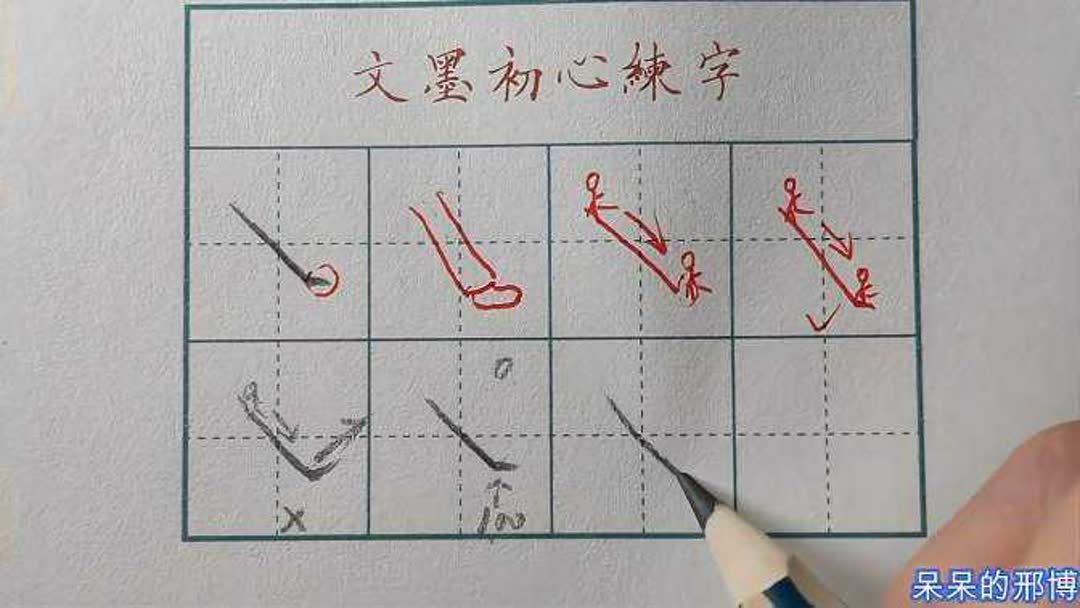 文墨初心練字
0
x
100
呆呆的邢博